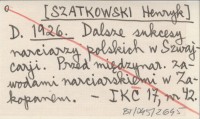 [SZATKOWSKI Henryk]
D. 1926. Dalsze sukcesy
narciarzy polskich w Szwaj-
carji. Przed międzynar. za-
wodami narciarskiemi w Za-
kopanem. – IKC 17, nr 42.